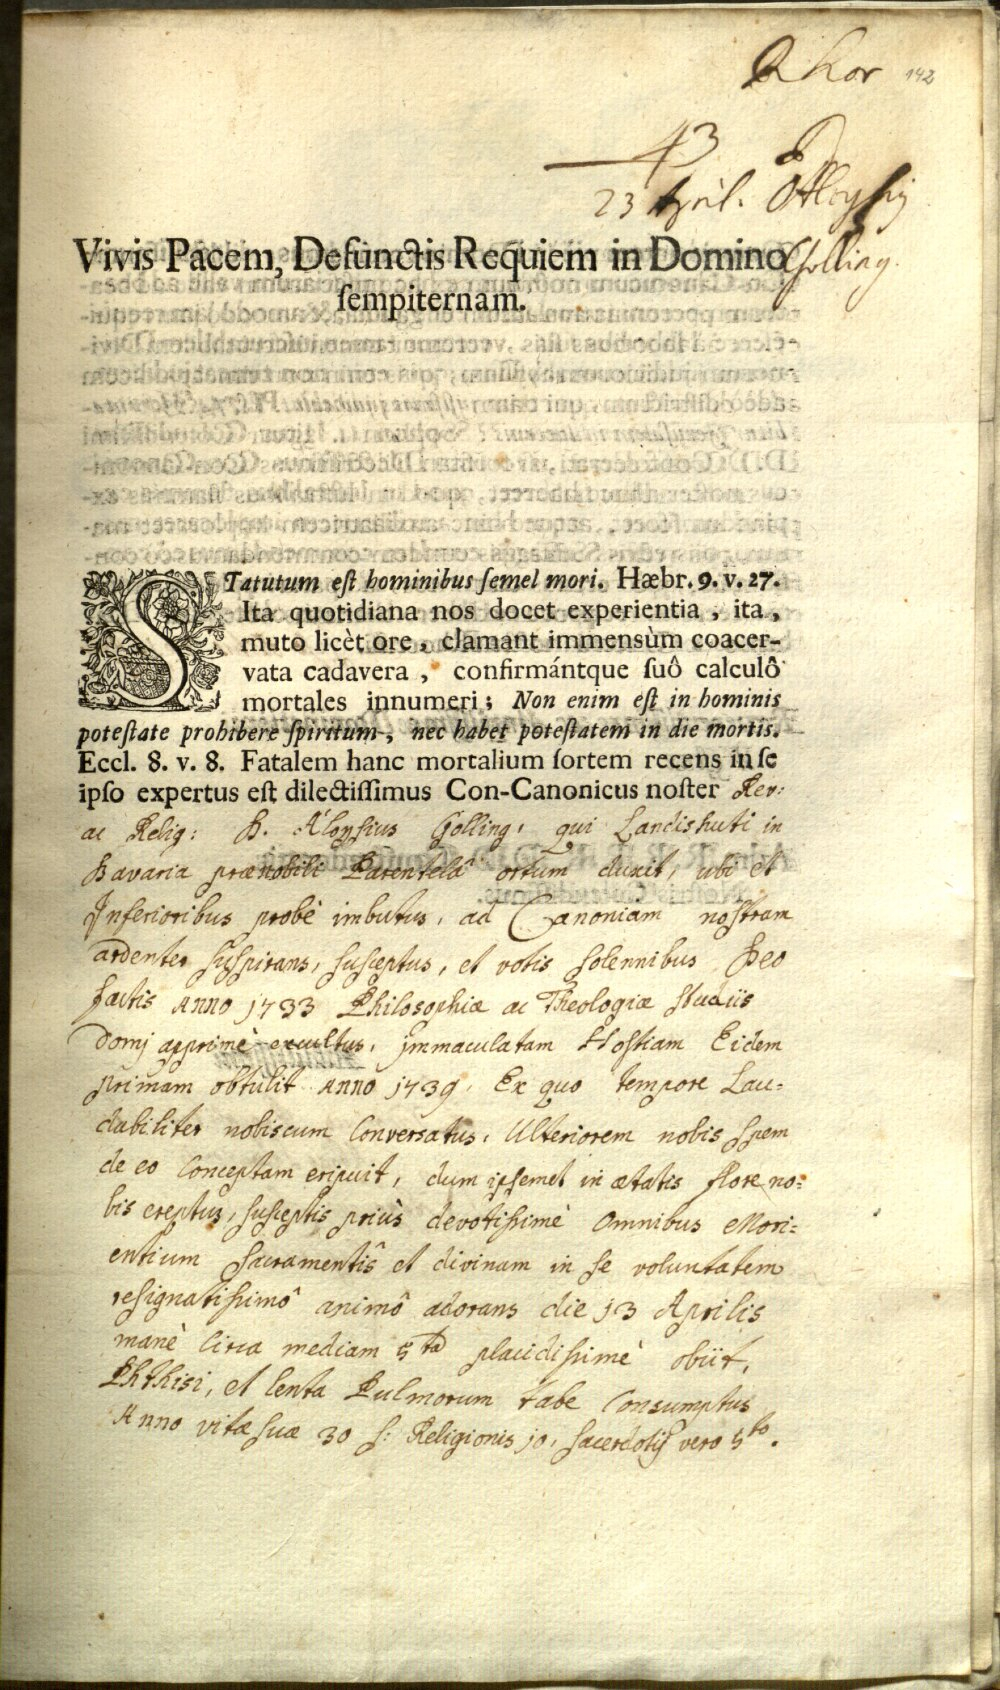 142
43
23 April. Aloysij
Golling.
Vivis Pacem, Defunctis Requiem in Domino
ſempiternam.
STatutum eſt hominibus ſemel mori. Hæbr. 9. v. 27.
Ita quotidiana nos docet experientia, ita,
muto licèt ore, clamant immensùm coacer-
vata cadavera, confirmántque ſuô calculô
mortales innumeri; Non enim eſt in hominis
poteſtate prohibere ſpiritum, nec habet poteſtatem in die mortis.
Eccl. 8. v. 8. Fatalem hanc mortalium ſortem recens in ſe
ipſo expertus eſt dilectiſſimus Con-Canonicus noſter Rev:
ac Relig: D. Aloysius Golling, qui Landishuti in
Bavaria prænobili Parentelâ ortum duxit, ubi et
Inferioribus probè imbutus, ad Canoniam noſtram
ardenter suſpirans, suſceptus, et votis solennibus Deo
factis Anno 1733 Philosophiæ ac Theologiæ studiis
domi apprimè excultus, immaculatam Hoſtiam Eidem
primam obtulit Anno 1739. Ex quo tempore Lau=
dabiliter nobiscum Conversatus, Ulteriorem nobis spem
de eo Conceptam eripuit, dum ipsemet in ætatis flore no=
bis ereptus, suſceptis priùs devotiſsimè omnibus Mori=
entium Sacramentis et divinam in se voluntatem
resignatiſsimô animô adorans die 13 Aprilis
manè Circa mediam 5ta placidiſsimè obiit,
Phthisi, et lenta Pulmorum tabe Consumptus
Anno vitæ suæ 30 S: Religionis 10, sacerdotij vero 5to.